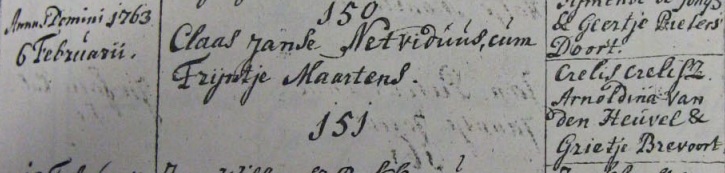 Anno Domini 1763
6 Februarii.
150
Claas Janse Net viduus, cum
Trijntje Maartens.
151
& Geertje Pieters
Doort.
Crelis Crelisz.
Arnoldina van
den Heuvel &
Grietje Brevoort.